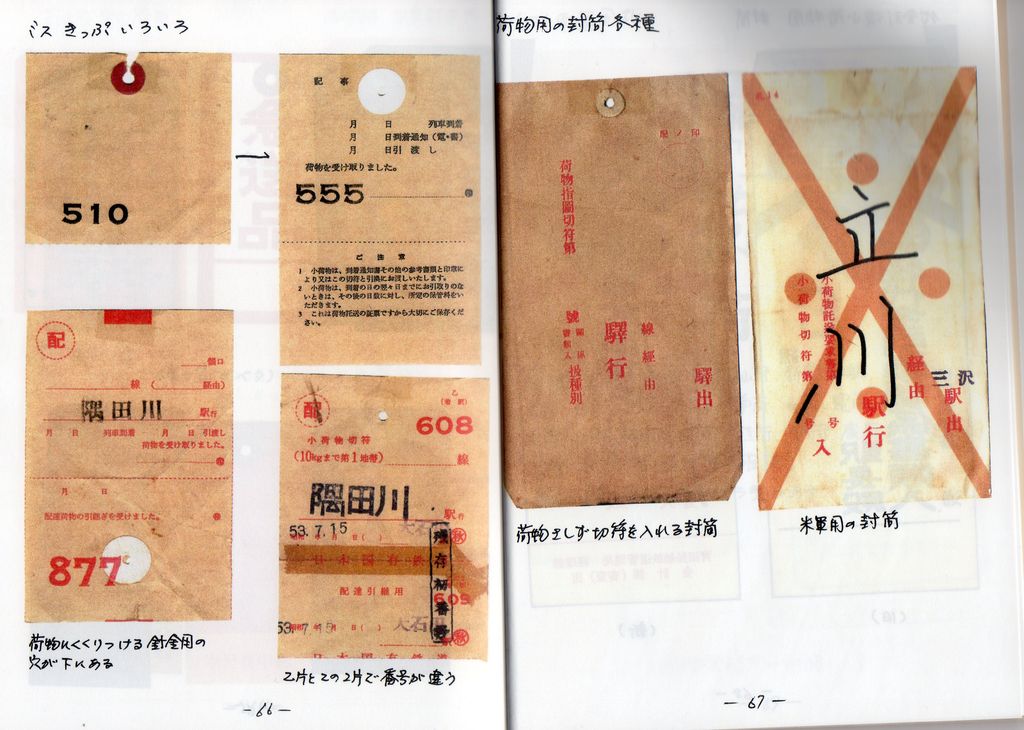 ミス きっぷ いろいろ
510
記事
月 日 列車到着
月 日到着通知(電・書)
月 日引渡し
荷物を受け取りました。
555
ご注意
1 小荷物は、到着通知書その他の参考書類と印章に
より又はこの切符と引換にお渡しいたします。
2 小荷物は、到着の日の翌々日までにお引取りのな
いときは、その後の日数に対し、所定の保管料をい
ただきます。
3 これは荷物託送の証票ですから大切にご保存くだ
さい。
配
個口
線 ( 経由)
隅田川 駅行
月 日 列車到着 月 日引渡
荷物を受け取りました。
月 日
配達荷物の引継ぎを受けました。
877
荷物にくくりつける針金用の
穴が下にある
配
乙
608
小荷物切符
(10kgまで第1地帯) 線
隅田川 駅行
53.7.15
日本国有鉄道
配達引継用
609
残存初番号
53.7.15
大石田
日本国有鉄道
乙片とこの2片で番号が違う
-66-
荷物用の封筒各種
印ノ駅
荷物指圖切符第
號
線經由
驛行
扱種別
驛出
荷物さしず切符を入れる封筒
立川
小荷物切符第
号
経由
三沢
駅出
駅行
入
米軍用の封筒
-67-